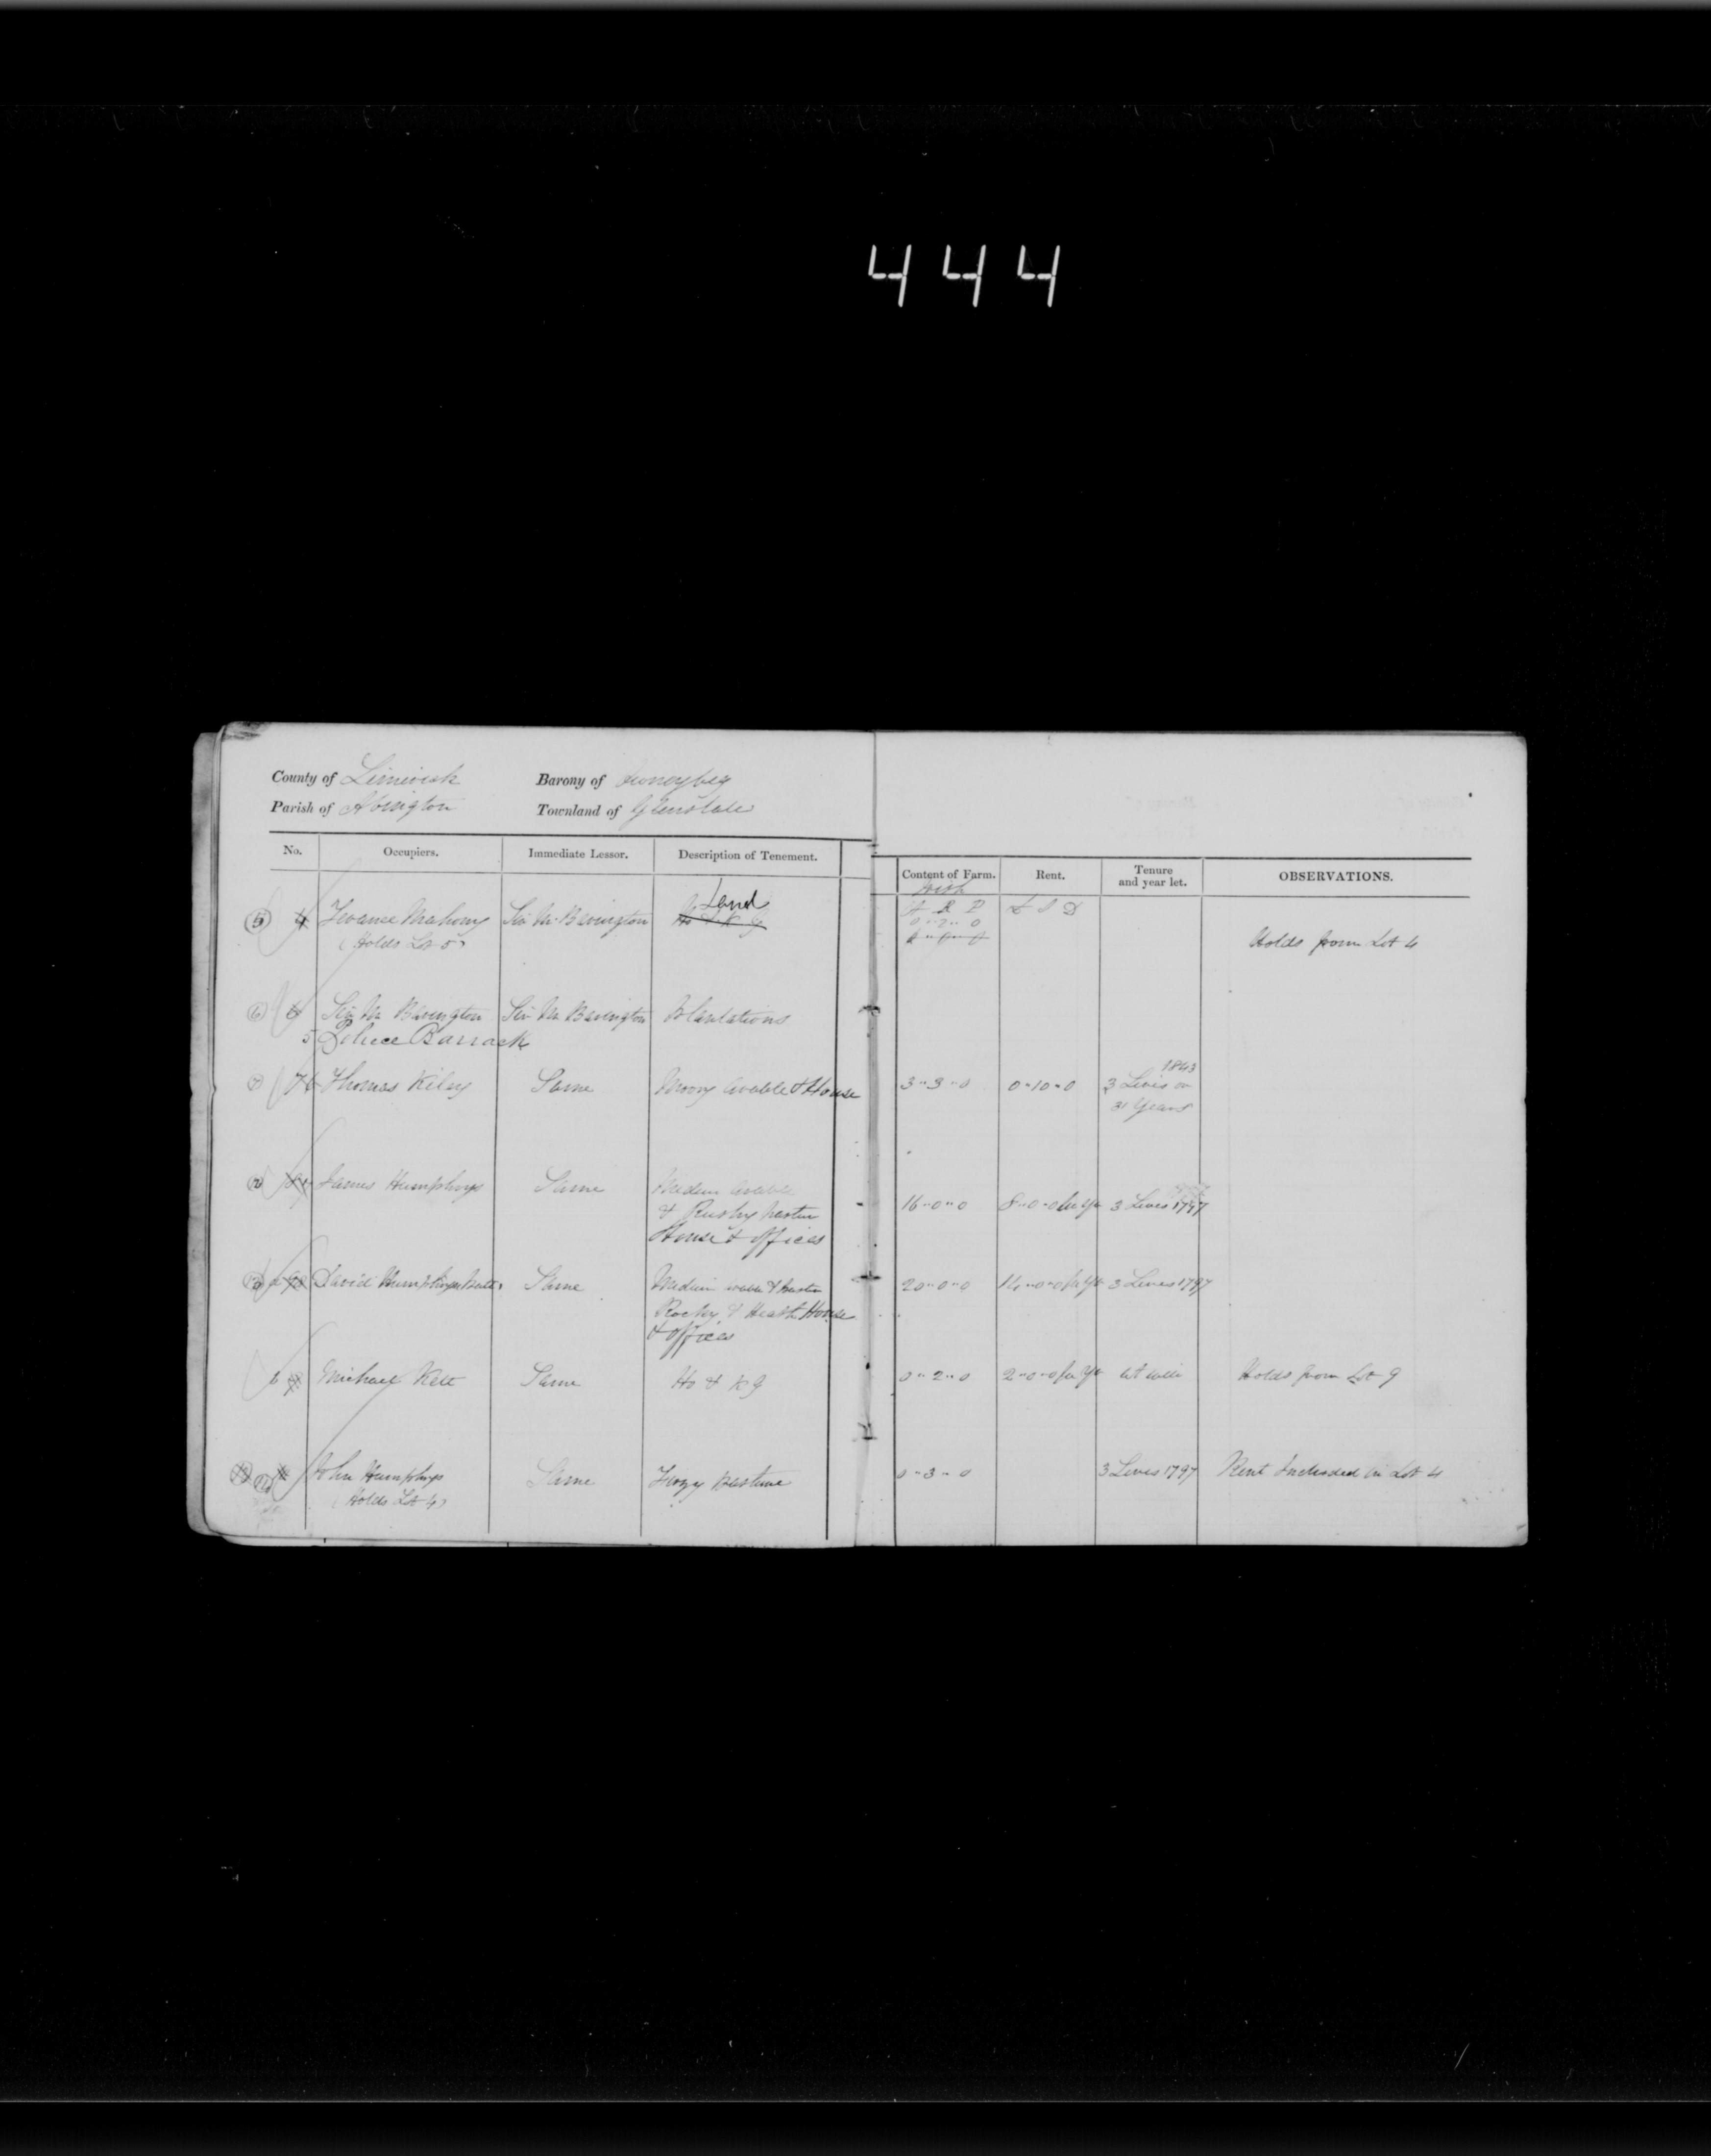 444
County of Limerick Barony of Owneybeg
Parish of Abington Townland of Glenstale
No. Occupiers. Immediate Lessor. Description of Tenement. Content of Farm. Rent. Tenure and year let. OBSERVATIONS.
Irish
A R P £ S D
Land
5 4 Terance Mahony Sir M. Barington Ho & K G 0 " 2 " 0
(Holds Lot 5) Holds from Lot 4
6 Sir M Barington Sir M Barington Plantations
5 Police Barrack
1843
7 6 Thomas Kiley Same Moory Arable & House 3 " 3 " 0 0 " 10 " 0 3 Lives or
31 Years
James Humphrys Same Medium Arable
& Rushy Pasture 16 " 0 " 0 8 " 0 " 0 per yr 3 Lives 1797
House & Offices
David Humphrys Same Medium Arable & Pasture 20 " 0 " 0 14 " 0 " 0 per yr 3 Lives 1797
Rocky & Heath House
& Offices
Michael Kett Same Ho & K G 0 " 2 " 0 2 " 0 " 0 per yr at will Holds from Lot 9
John Humphrys Same Furzy Pasture 0 " 3 " 0 3 Lives 1797 Rent Included in Lot 4
(Holds Lot 4)